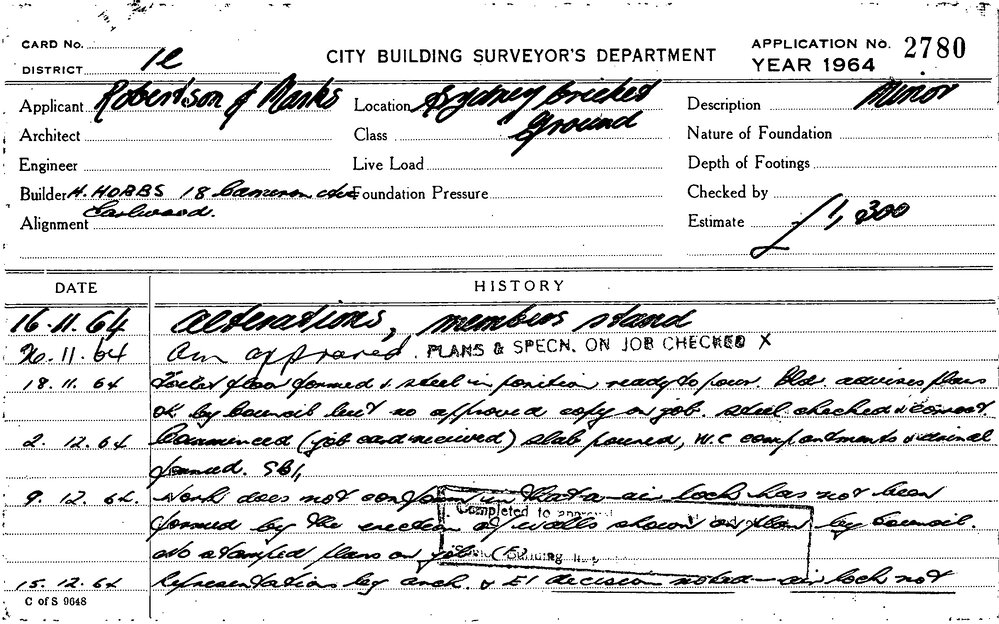 CARD No.
DISTRICT 1e
CITY BUILDING SURVEYOR'S DEPARTMENT
APPLICATION No. 2780
YEAR 1964
Applicant Robertson & Marks
Location Sydney Cricket
Ground
Description Minor
Architect
Class
Nature of Foundation
Engineer
Live Load
Depth of Footings
Builder H. HOBBS 18 Cameron Ave
Earlwood.
Foundation Pressure
Checked by
Alignment
Estimate £1,300
DATE
HISTORY
16.11.64 Alterations, members stand
26.11.64 approved. PLANS & SPECN. ON JOB CHECKED X
18.11.64 Toilet floor formed & steel in position ready to pour. Bldr. advises plans
OK by Council but no approved copy on job. Steel checked & correct.
2.12.64 Commenced (job card received) slab poured, W.C compartments & urinal
formed.
9.12.64. Work does not conform in that a air lock has not been
formed by the erection of walls shown on plan by Council.
No stamped plans on job
Completed to
Building
15.12.64 Representation by arch. & E1 decision noted - air lock not
C of S 9648